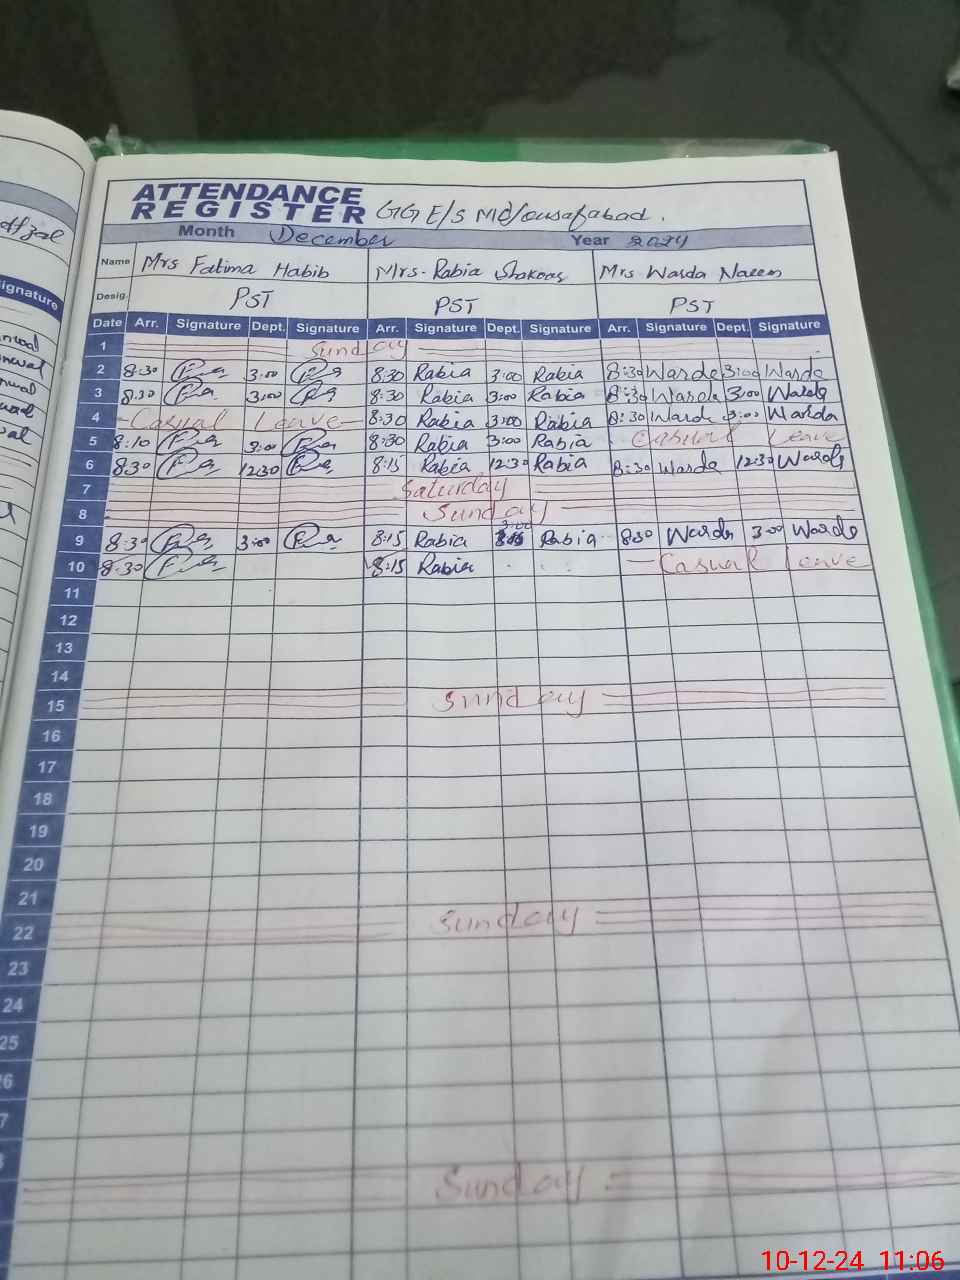 ATTENDANCE
REGISTER
Month December Year 2024
Name Mrs Fatima Habib Mrs. Rabia Shakoor Mrs. Warda Naeem
Desig. PST PST PST
Date Arr. Signature Dept. Signature Arr. Signature Dept. Signature Arr. Signature Dept. Signature
1 Sunday
2 8:30 3:00 8:30 Rabia 3:00 Rabia 8:30 Warda 3:00 Warda
3 8:30 3:00 8:30 Rabia 3:00 Rabia 8:30 Warda 3:00 Warda
4 Casual Leave 8:30 Rabia 3:00 Rabia 8:30 Warda 3:00 Warda
5 8:10 3:00 8:30 Rabia 3:00 Rabia Casual Leave
6 8:30 12:30 8:15 Rabia 12:30 Rabia 8:30 Warda 12:30 Warda
7 Saturday
8 Sunday
9 8:30 3:00 8:15 Rabia 3:00 Rabia 830 Warda 3:00 Warda
10 8:30 8:15 Rabia Casual Leave
11
12
13
14
15 Sunday
16
17
18
19
20
21
22 Sunday
23
24
25
Sunday
Signature
10-12-24 11:06